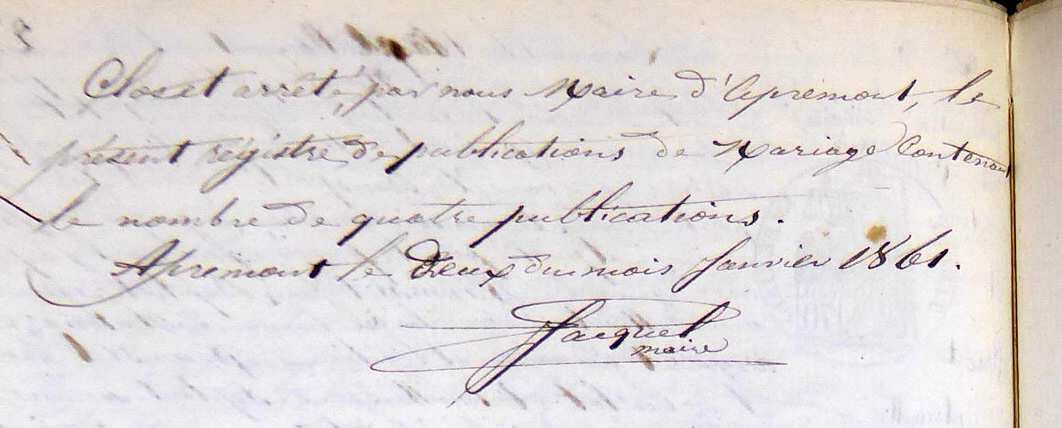 Clos et arrêté, par nous Maire d'Apremont, le
présent régistre de publications de Mariage Contenant
le nombre de quatre publications.
Apremont le deux du mois Janvier 1861.
Jacquel
maire